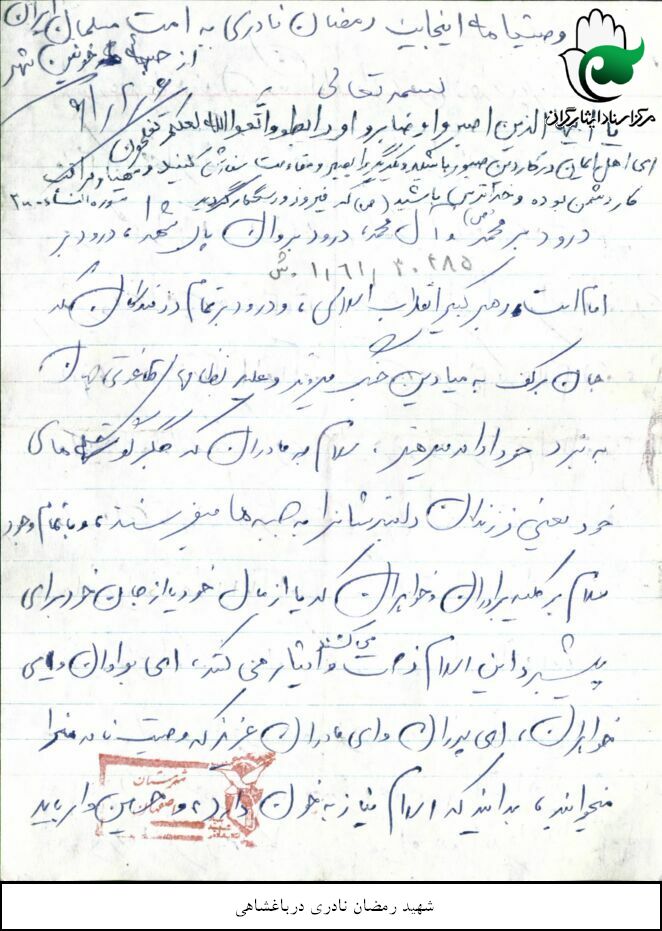 وصیتنامه اینجانب رمضان نادری به امت مسلمان ایران
از جبهه خونین شهر
مرکز اسناد ایثارگران
بسمه تعالی
۶۱/۲/۶
یا ایها الذین اصبروا و صابروا و رابطوا واتقوا الله لعلکم تفلحون
ای اهل ایمان در کار دین صبور باشید و یکدیگر را به صبر و مقاومت سفارش کنید و مهیا و مراقب
کار دشمن بوده و خدا ترس باشید که فیروز و رستگار گردید سوره النساء ۲۰۰
درود بر محمد (ص) و آل محمد، درود بر روان پاک شهدا، درود بر
۱۱۶۱۱۳۰۴۸۵
امام امت، رهبر کبیر انقلاب اسلامی، و درود بر تمام رزمندگان که
جان بر کف به میادین جنگ میروند و علیه نظامهای طاغوتی
به نبرد خود ادامه میدهند، سلام به مادران که جگر گوشه های
خود یعنی فرزندان دلبندشانرا به جبهه ها میفرستند، و با تمام وجود
سلام بر کلیه برادران و خواهران که یا از مال خود یا از جان خود برای
پیشبرد این اسلام زحمت می کشند و ایثار می کنند، ای برادران و ای
خواهران، ای پدران و ای مادران عزیز که وصیت نامه مرا
میخوانید، بدانید که اسلام نیاز به خون دارد، و حسین وار باید
شهرستان
اصفهان
شهید رمضان نادری درباغشاهی